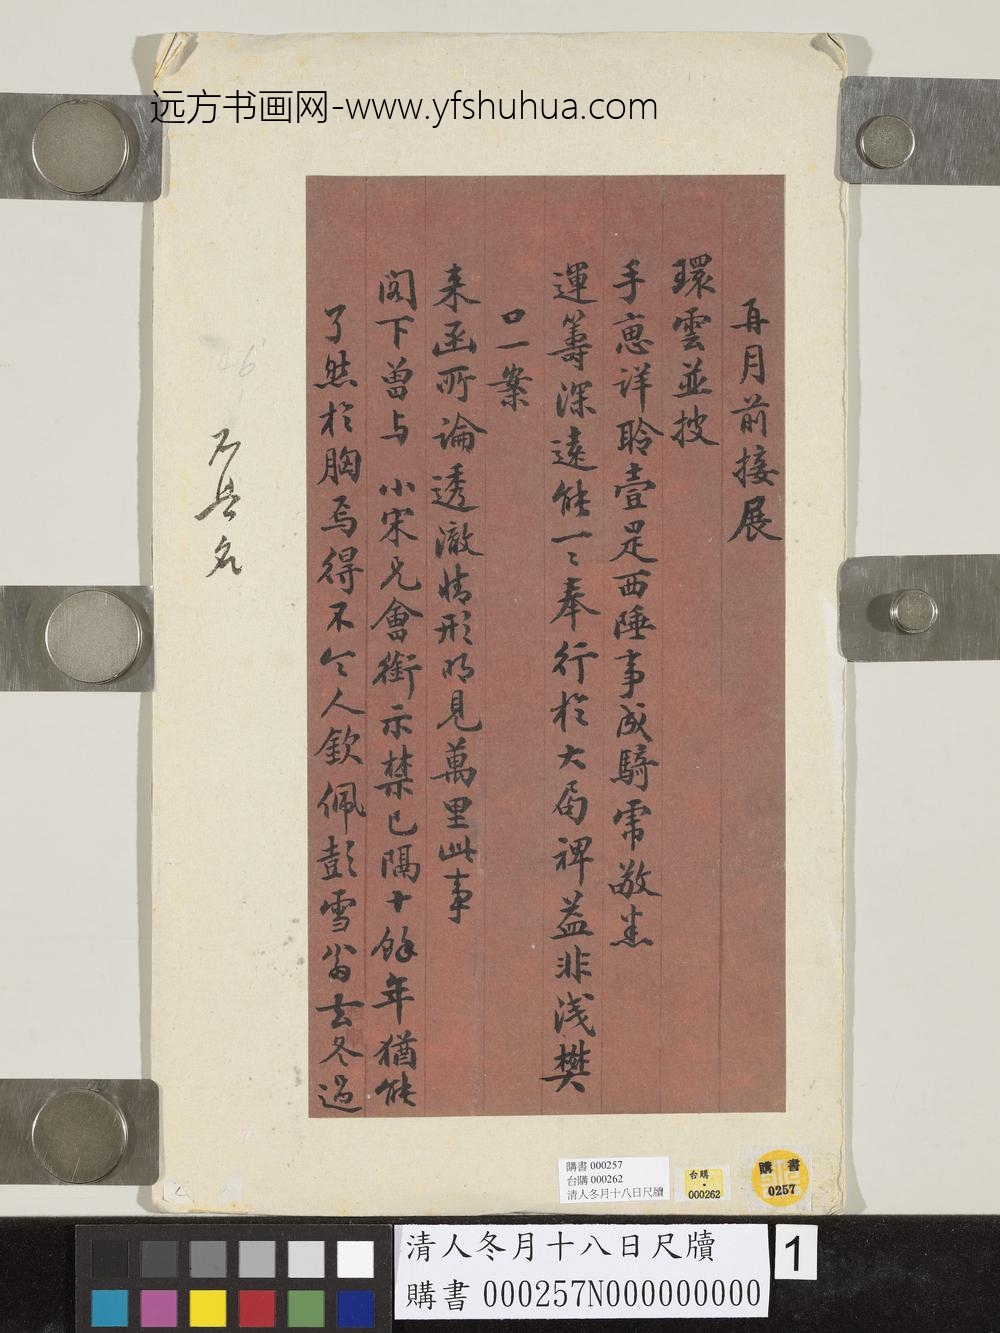 远方书画网-www.yfshuhua.com
再月前接展
環雲並披
手惠詳聆壹是西陲事成騎虎敬悉
運籌深遠能一々奉行於大局裨益非淺樊
口一案
来函所論透澈情形明見萬里此事
閣下曽与小宋兄會銜示禁已隔十餘年猶能
了然於胸焉得不令人欽佩彭雪翁去冬過
不具名
146
購書 000257
台購 000262
清人冬月十八日尺牘
台購
000262
購書
0257
清人冬月十八日尺牘
購書 000257N000000000
1